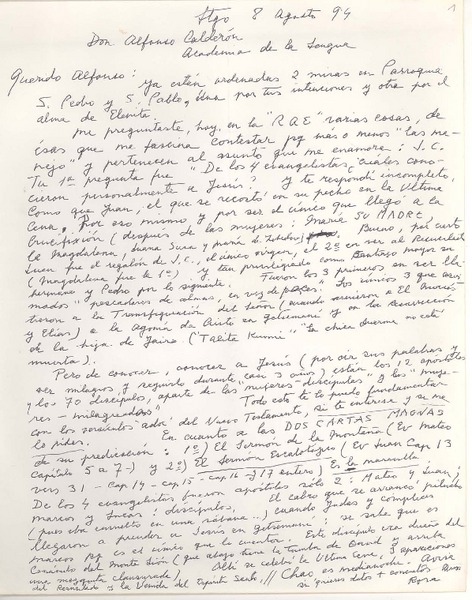 1
Stgo 8 Agosto 94
Don Alfonso Calderón
Academia de la Lengua
Querido Alfonso: ya están ordenadas 2 misas en Parroquia
S. Pedro y S. Pablo, una por tus intenciones y otra por el
alma de "Elenita"
me preguntaste, hoy, en la "RAE" varias cosas, de
ésas que me fascina contestar pq más o menos "las ma-
nejo" y pertenecen al asunto que me enamora: J.C.
Tu 1ª pregunta fue "De los 4 evangelistas, cuáles cono-
cieron personalmente a Jesús? y te respondí incompleto.
Como que Juan, el que se recostó en su pecho en la Ultima
Cena, Por eso mismo y por ser el único que llegó a la
Crucifixión (después de las mujeres: María SU MADRE,
la Magdalena, Juana Susa y María Bueno, por cierto
Juan fue el regalón de J.C., el único virgen, el 2º en ser al Resucitado
(Magdalena fue la 1ª) y tan privilegiado como Santiago mayor su
hermano y Pedro por lo siguiente. Fueron los 3 primeros en ser lla-
mados "pescadores de almas, en vez de peces". Los únicos 3 que asis-
tieron a la Transfiguración del Señor (cuando
y Elías) a la agonía de Cristo en Getsemaní y en la Resurrección
de la hija de Jairo ("Talita Kumi" "la chica duerme no está
muerta).
Pero de conocer, conocer a Jesús (por oir sus palabras y
ver milagros y seguirlo durante casi 3 años) están los 12 apóstoles
y los 70 discípulos, aparte de las mujeres-discípulas" y las "muje-
res-milagreadas" Todo esto te lo puedo fundamentar
con los versículos ad'oc del Nuevo Testamento, si te interesa y me
lo pides. En cuanto a las DOS CARTAS MAGNAS
de su predicación: 1º) El Sermón de la Montaña (Ev Mateo
Capítulo 5 a 7-) y 2º) El Sermón Escatológico (Ev Juan Cap 13
vers 31 - cap 14 - cap 15 - cap 16 y 17 entero) Es la maravilla.
De los 4 evangelistas fueron apóstoles sólo 2: Mateo y Juan;
Marcos y Lucas: discípulos, El cabro que se arrancó pilucho
(pues iba envuelto en una sábana..) cuando Judas y cómplices
llegaron a prender a Jesús en Getsemaní: se sabe que es
Marcos pq es el único que lo cuenta. Este discípulo era dueño del
Cenáculo del Monte Sión (que abajo tiene la tumba de David y arriba
una mezquita clausurada). Allí se celebró la Ultima Cena, 3 apariciones
del Resucitado y la Venida del Espíritu Santo,// Chao es medianoche. Avisa
si quieres datos + concretos
Rosa